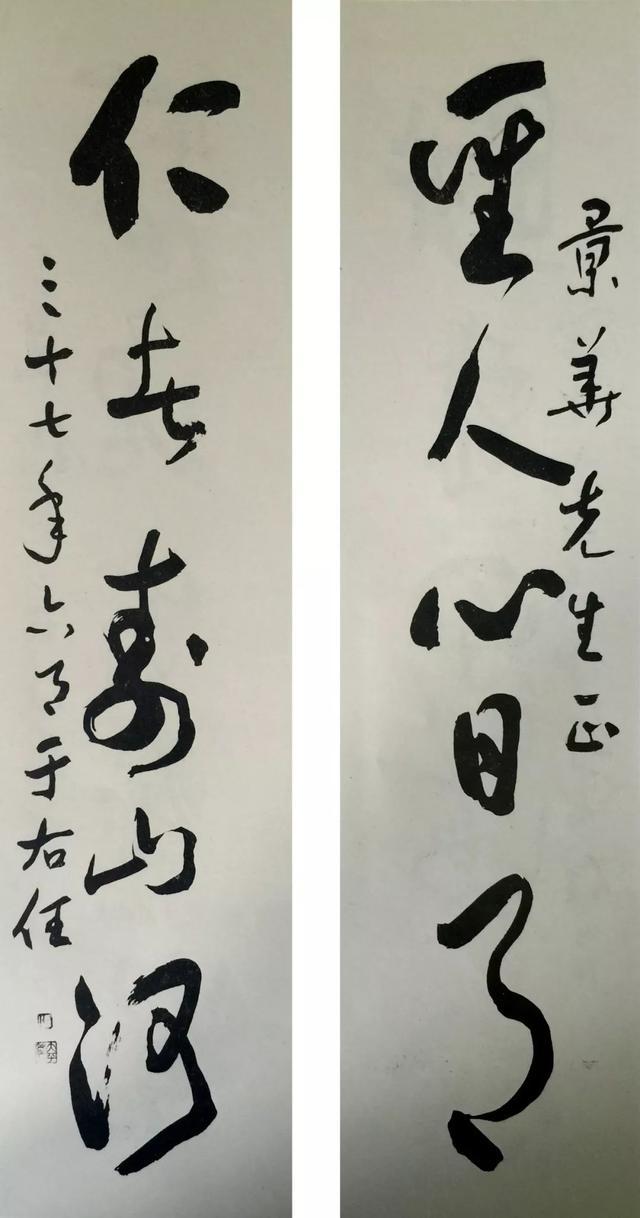 景華先生正
聖人心日月
仁者壽山河
三十七年六月于右任